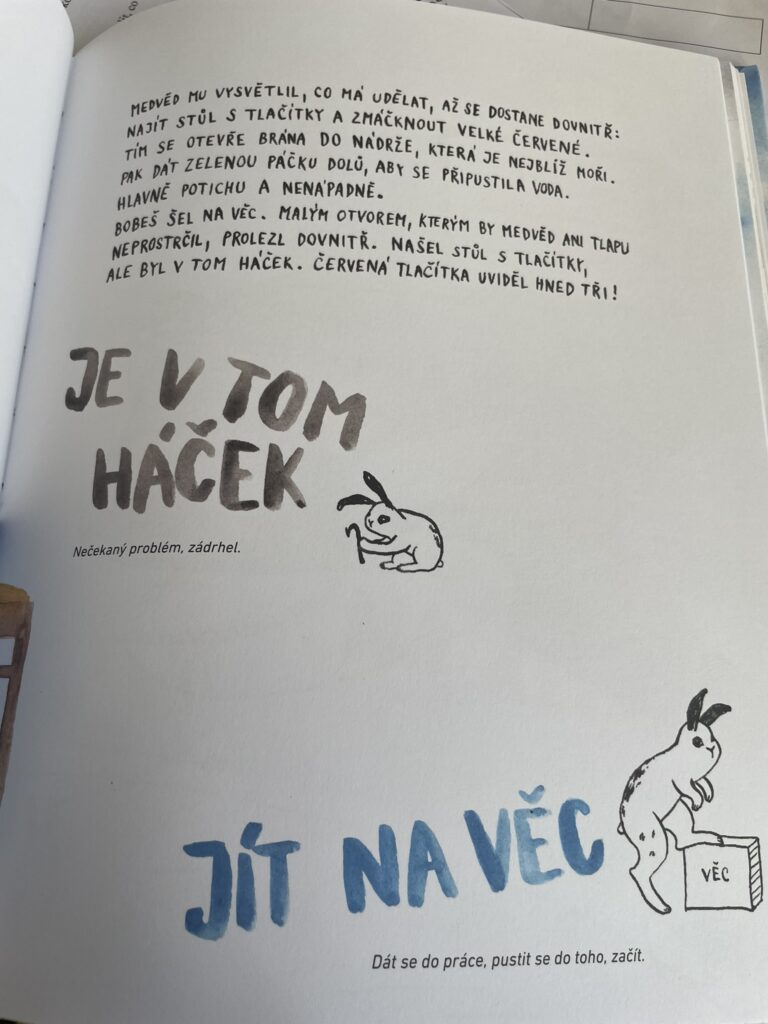 MEDVĚD MU VYSVĚTLIL, CO MÁ UDĚLAT, AŽ SE DOSTANE DOVNITŘ:
NAJÍT STŮL S TLAČÍTKY A ZMÁČKNOUT VELKÉ ČERVENÉ.
TÍM SE OTEVŘE BRÁNA DO NÁDRŽE, KTERÁ JE NEJBLÍŽ MOŘI.
PAK DÁT ZELENOU PÁČKU DOLŮ, ABY SE PŘIPUSTILA VODA.
HLAVNĚ POTICHU A NENÁPADNĚ.
BOBEŠ ŠEL NA VĚC. MALÝM OTVOREM, KTERÝM BY MEDVĚD ANI TLAPU
NEPROSTRČIL, PROLEZL DOVNITŘ. NAŠEL STŮL S TLAČÍTKY,
ALE BYL V TOM HÁČEK. ČERVENÁ TLAČÍTKA UVIDĚL HNED TŘI!
JE V TOM
HÁČEK
Nečekaný problém, zádrhel.
JÍT NA VĚC
VĚC
Dát se do práce, pustit se do toho, začít.